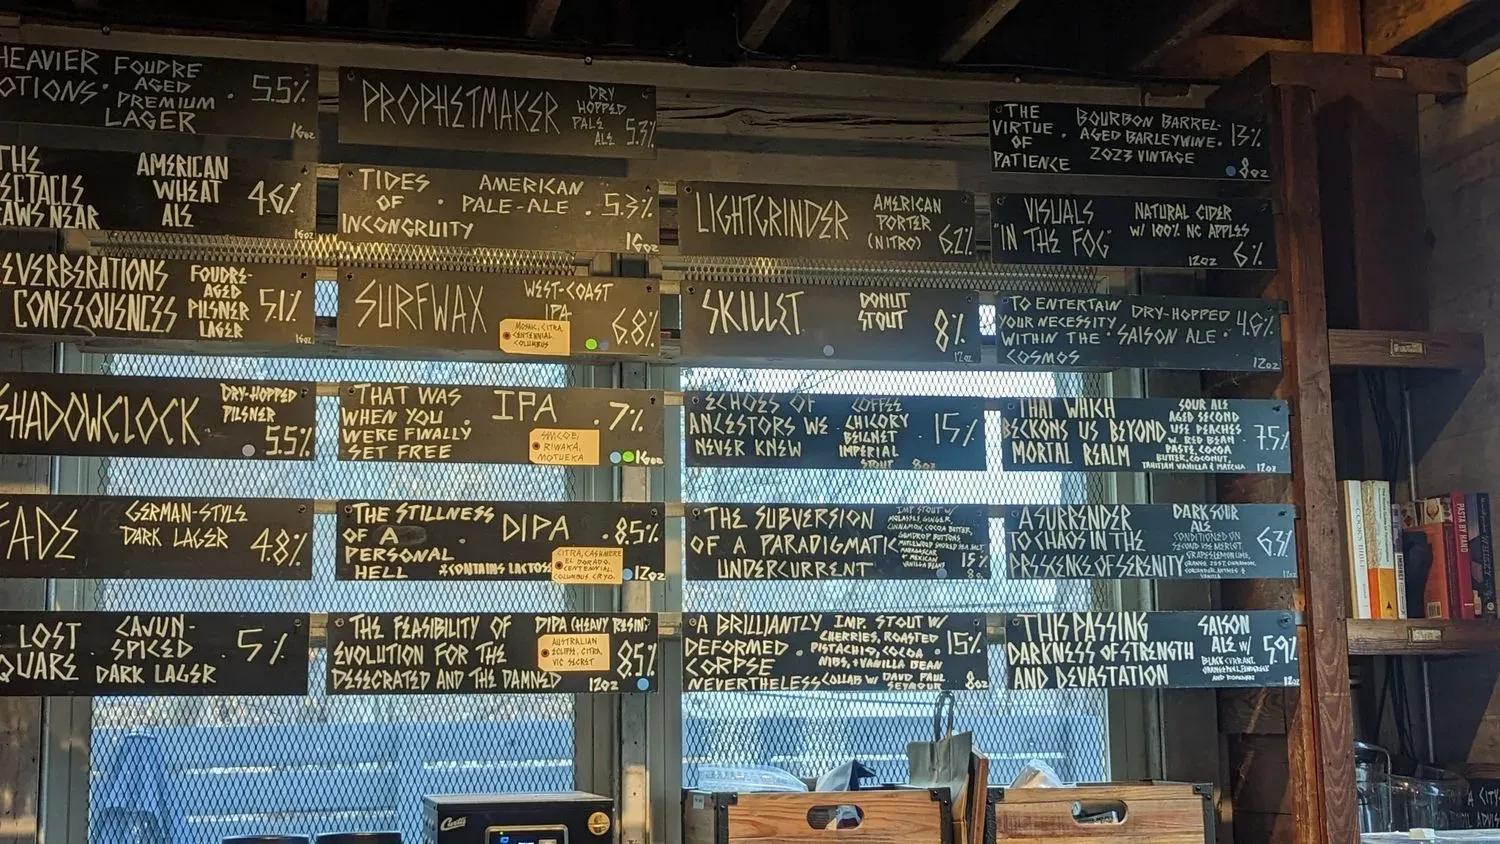 HEAVIER
OTIONS
FOUDRE
AGED
PREMIUM
LAGER
5.5%
16oz
THE
ECTACLS
AWS NEAR
AMERICAN
WHEAT
ALE
4.6%
16oz
EVERBERATIONS
CONSEQUENCES
FOUDRE-
AGED
PILSNER
LAGER
5.1%
16oz
SHADOWCLOCK
DRY-HOPPED
PILSNER
5.5%
FADE
GERMAN-STYLE
DARK LAGER
4.8%
LOST
QUARE
CAJUN-
SPICED
DARK LAGER
5%
PROPHETMAKER
DRY
HOPPED
PALE
ALE
5.3%
TIDES
OF
INCONGRUITY
AMERICAN
PALE-ALE
5.3%
16oz
SURFWAX
WEST-COAST
IPA
6.8%
MOSAIC, CITRA,
CENTENNIAL
COLUMBUS
THAT WAS
WHEN YOU
WERE FINALLY
SET FREE
IPA
7%
SIMCOE,
RIWAKA,
MOTUEKA
16oz
THE STILLNESS
OF A
PERSONAL
HELL
DIPA
8.5%
*CONTAINS LACTOSE
CITRA, CASHMERE
EL DORADO,
CENTENNIAL,
COLUMBUS CRYO.
12oz
THE FEASIBILITY OF
EVOLUTION FOR THE
DESECRATED AND THE DAMNED
DIPA (HEAVY RESIN)
AUSTRALIAN
ECLIPSE, CITRA,
VIC SECRET
8.5%
12oz
LIGHTGRINDER
AMERICAN
PORTER
(NITRO)
6.2%
SKILLET
DONUT
STOUT
8%
12oz
ECHOES OF
ANCESTORS WE
NEVER KNEW
COFFEE
CHICORY
BEIGNET
IMPERIAL
STOUT
15%
8oz
THE SUBVERSION
OF A PARADIGMATIC
UNDERCURRENT
IMP STOUT W/
MOLASSES, GINGER,
CINNAMON, COCOA BUTTER,
GUMDROP BUTTONS
SMOKED SEA SALT
MADAGASCAR
+ MEXICAN
VANILLA BEANS
15%
A BRILLIANTLY
DEFORMED
CORPSE
NEVERTHELESS
IMP. STOUT W/
CHERRIES, ROASTED
PISTACHIO, COCOA
NIBS, + VANILLA BEAN
COLLAB W/ DAVID PAUL
SEYMOUR
15%
8oz
THE
VIRTUE
OF
PATIENCE
BOURBON BARREL-
AGED BARLEYWINE.
2023 VINTAGE
13%
8oz
VISUALS
"IN THE FOG"
NATURAL CIDER
W/ 100% NC APPLES
12oz
6%
TO ENTERTAIN
YOUR NECESSITY
WITHIN THE
COSMOS
DRY-HOPPED
SAISON ALE
4.6%
12oz
THAT WHICH
BECKONS US BEYOND
MORTAL REALM
SOUR ALE
AGED SECOND
USE PEACHES
W. RED BEAN
PASTE, COCOA
BUTTER, COCONUT,
TAHITIAN VANILLA & MATCHA
7.5%
12oz
A SURRENDER
TO CHAOS IN THE
PRESCENCE OF SERENITY
DARK SOUR
ALE
CONDITIONED ON
SECOND USE MERLOT
ORANGE ZEST, CINNAMON,
VANILLA
6.3%
12oz
THIS PASSING
DARKNESS OF STRENGTH
AND DEVASTATION
SAISON
ALE W/
BLACK CURRANT,
5.9%
12oz
Curtis
PASTA BY HAND
A CITY